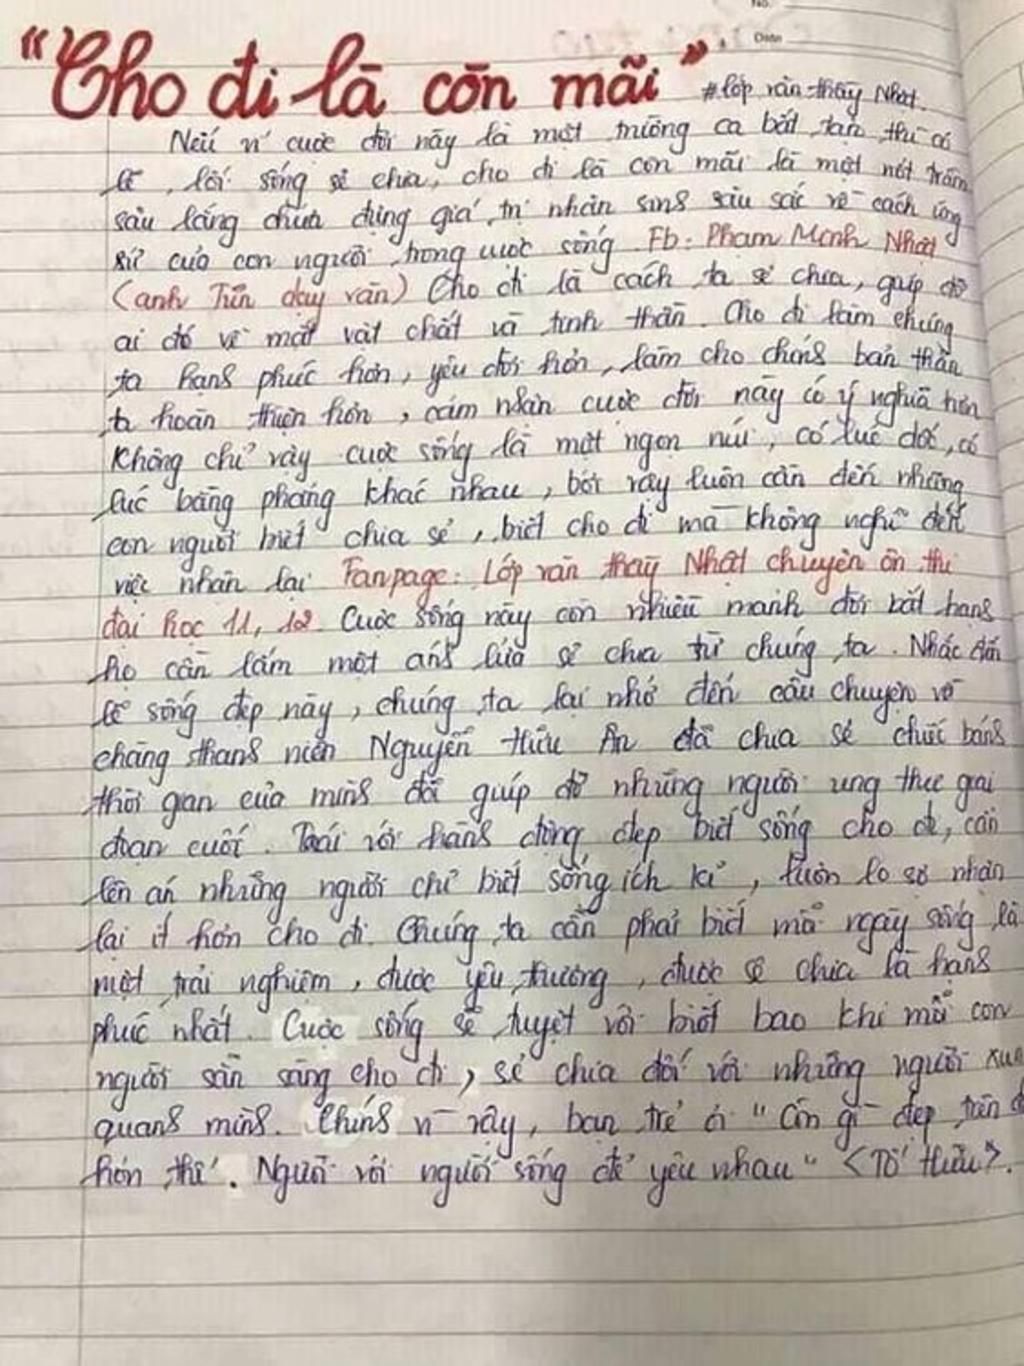 No.
Date
"Cho đi là còn mãi" #lớp văn thầy Nhật.
Nếu ví cuộc đời này là một trường ca bất tận thì có
lẽ, lối sống sẻ chia, cho đi là còn mãi là một nốt trầm
sâu lắng chứa đựng giá trị nhân sinh sâu sắc về cách ứng
xử của con người trong cuộc sống. Fb: Phạm Minh Nhật
(anh Tiến dạy văn) Cho đi là cách ta sẻ chia, giúp đỡ
ai đó về mặt vật chất và tinh thần. Cho đi làm chúng
ta hạnh phúc hơn, yêu đời hơn, làm cho chính bản thân
ta hoàn thiện hơn, cảm nhận cuộc đời này có ý nghĩa hơn
Không chỉ vậy cuộc sống là một ngọn núi, có lúc dốc, có
lúc bằng phẳng khác nhau, bởi vậy luôn cần đến những
con người biết chia sẻ, biết cho đi mà không nghĩ đến
việc nhận lại Fanpage: Lớp văn thầy Nhật chuyên ôn thi
đại học 11, 12. Cuộc sống này còn nhiều mảnh đời bất hạnh
họ cần lắm một ánh lửa sẻ chia từ chúng ta. Nhắc đến
lẽ sống đẹp này, chúng ta lại nhớ đến câu chuyện về
chàng thanh niên Nguyễn Hữu Ân đã chia sẻ chiếc bánh
thời gian của mình để giúp đỡ những người ung thư giai
đoạn cuối. Trái với hành động đẹp biết sống cho đi, cần
lên án những người chỉ biết sống ích kỉ, luôn lo sợ nhận
lại ít hơn cho đi. Chúng ta cần phải biết mỗi ngày sống là
một trải nghiệm, được yêu thương, được sẻ chia là hạnh
phúc nhất. Cuộc sống sẽ tuyệt vời biết bao khi mỗi con
người sẵn sàng cho đi, sẻ chia đối với những người xung
quanh mình. Chính vì vậy, bạn trẻ ơi "Còn gì đẹp trên đ
hơn thế. Người với người sống để yêu nhau" <Tố Hữu>.